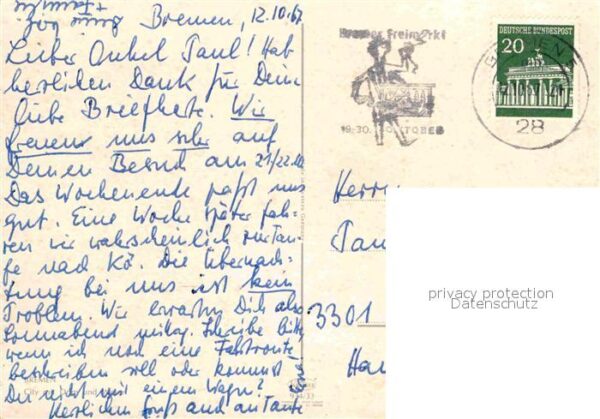 Bremen, 12.10.67
Lieber Onkel Paul! Hab
herzlichen Dank für Deine
liebe Briefkarte. Wir
freuen uns sehr auf
Deinen Besuch am 21/22.10.
Das Wochenende paßt uns
gut. Eine Woche später fah-
ren wir wahrscheinlich zur Tau-
fe nach Kö. Die Übernach-
tung bei uns ist kein
Problem. Wir erwarten Dich also
Sonnabend mittag. Schreibe bitte
wenn ich noch eine Fahrtroute
beschreiben soll oder kommst
Du nicht mit einem Wagen?
Herzlichen Gruß auch an Tante
Bremer Freimarkt
19.-30. OKTOBER
DEUTSCHE BUNDESPOST
20
28
Herrn
3301
privacy protection
Datenschutz
BREMEN